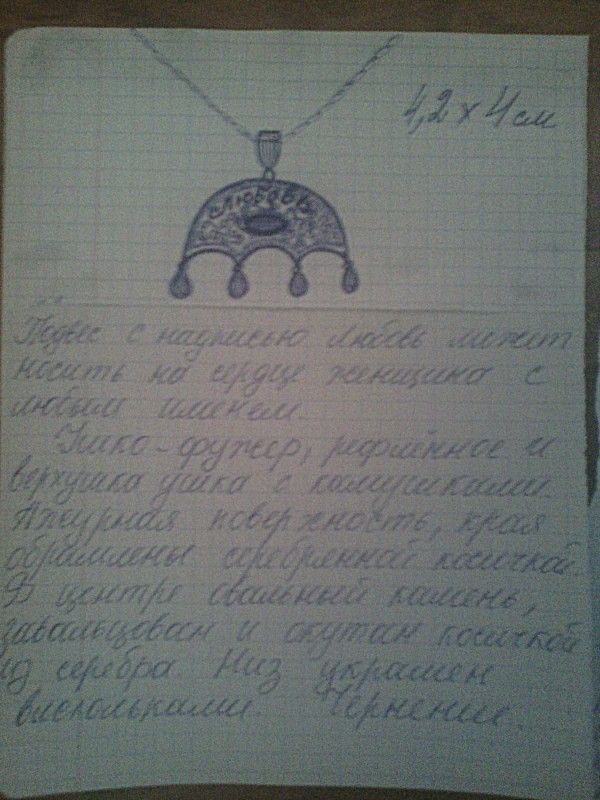 4,2 х 4 см
Любовь
Подвес с надписью Любовь может
носить на сердце женщина с
любым именем.
Ушко-фужер, рефлённое и
верхушка ушка с камушками.
Ажурная поверхность, края
обрамлены серебрянной косичкой.
В центре овальный камень,
завальцован и окутан косичкой
из серебра. Низ украшен
висюльками. Чернение...